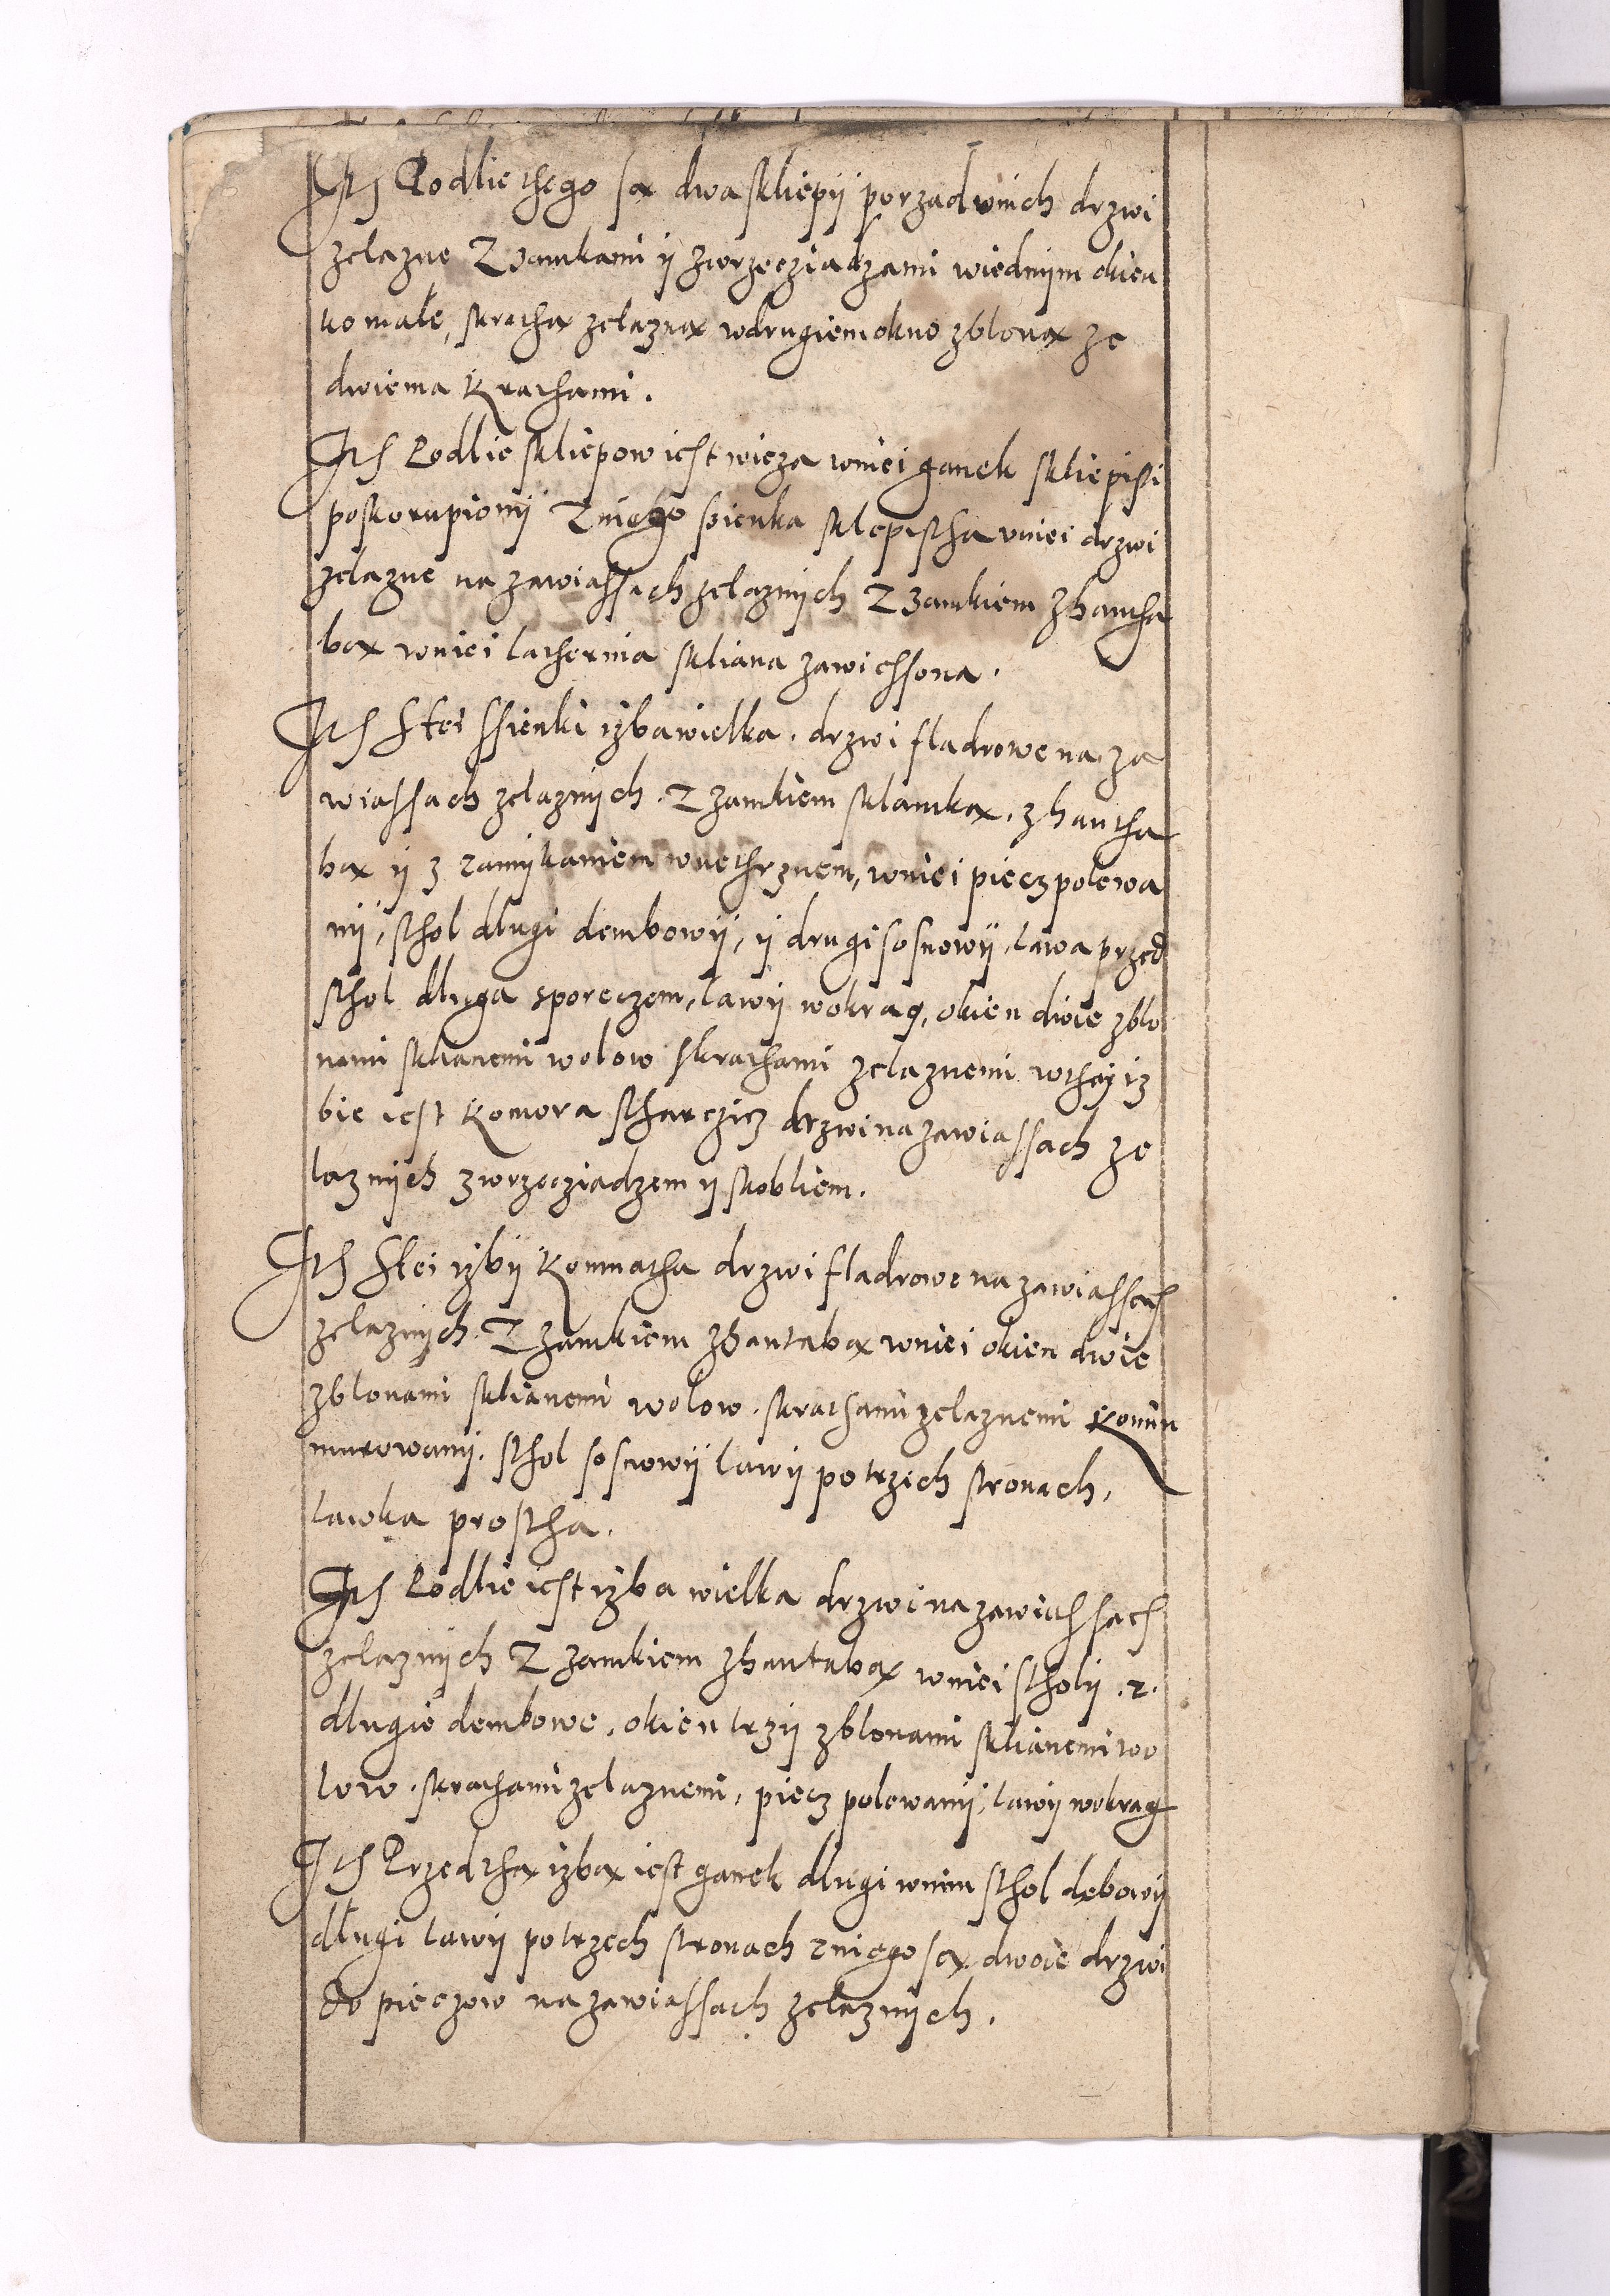 Ith Podlie thego są dwa skliepÿ porząd wnich drzwi
zelazne Z zamkami ÿ zwrzecziadzami wiednÿm okien
ko małe, skrathą zelazną wdrugiem okno zbloną ze
dwiema Krathami.
Ith Podlie skliepow iest wieza wniei ganek skliepisti
poskorupionÿ Z niego sienka sklepistha v niei drzwi
zelazne na zawiassach zelaznÿch Z zamkiem zhantha
bą wniei lathernia skliana zawiessona.
Ith Stei ssienki izba wielka. drzwi fladrowe na za
wiassach zelaznÿch. Z zamkiem sklamką. zhantha
bą ÿ z zamÿkaniem wnethrznem, wniei piecz polewa
nÿ, sthol długi dembowÿ, ÿ drugi sosnowÿ, lawa przed
sthol długa sporeczem, lawÿ wokrag, okien dwie zblo
nami sklianemi wolow skrathami zelaznemi wtheÿ iz
bie iest Komora scharczicz drzwi na zawiassach ze
laznÿch zwrzecziadzem ÿ skobliem.
Ith Stei izbÿ Kommatha drzwi fladrowe na zawiassach
zelaznÿch. Z zamkiem zhantabą wniei okien dwie
zblonami sklianemi wolow. skrathami zelaznemi Komin
murowanÿ. sthol sosnowÿ lawÿ po trzech stronach,
lawka prostha.
Ith Podlie iest izba wielka drzwi na zawiassach
zelaznÿch Z zamkiem zhantabą wniei stholÿ .2.
długie dembowe. okien trzÿ zblonami sklianemi wo
low. skrathami zelaznemi, piecz polewanÿ, lawÿ wokrag
Ith Przed thą izbą iest ganek długi wnim sthol debowÿ
długi lawÿ po trzech stronach zniego są dwoie drzwi
do pieczow na zawiassach zelaznÿch.